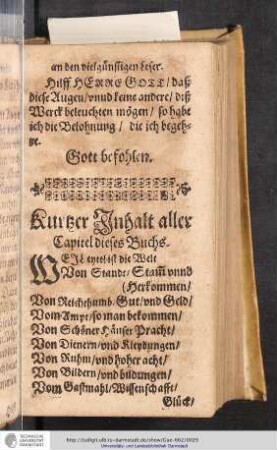 an den vielgünstigen Leser.
Hilff HERRE GOTT/ daß
diese Augen/ vnnd keine andere/ diß
Werck beleuchten mögen/ so habe
ich die Belohnung/ die ich begeh-
re.
Gott befohlen.
Kurtzer Inhalt aller
Capitel dieses Buchs.
WEJl eytel ist die Welt
Von Stande/ Stam̃ vnnd
(Herkommen/
Von Reichthumb/ Gut/ vnd Geld/
Vom Ampt/ so man bekommen/
Von Schöner Häuser Pracht/
Von Dienern/ vnd Kleydungen/
Von Ruhm/ vnd hoher acht/
Von Bildern/ vnd bildungen/
Vom Gastmahl/ Wissenschafft/
Glück/
TECHNISCHE UNIVERSITÄT DARMSTADT
http://tudigit.ulb.tu-darmstadt.de/show/Gue-662/0025
Universitäts- und Landesbibliothek Darmstadt